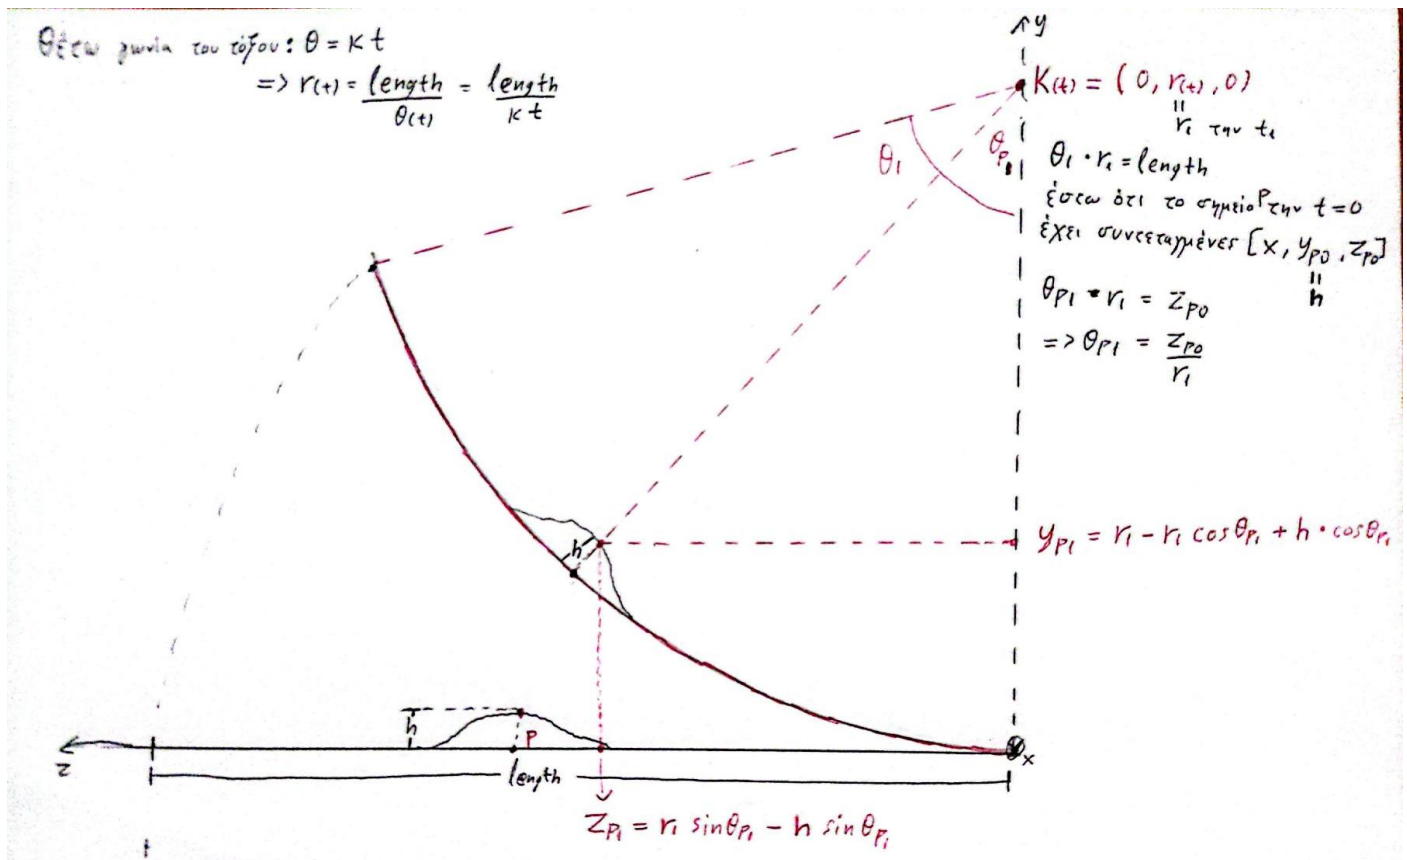 Θέτω γωνία του τόξου: θ = κ t
=> r(t) = length / θ(t) = length / κ t
y
K(t) = ( 0, r(t), 0)
"
r₁ την t₁
θ₁
θp₁
θ₁ · r₁ = length
έστω ότι το σημείο P την t=0
έχει συντεταγμένες [x, yp0, zp0]
"
h
θp1 · r₁ = zp0
=> θp1 = zp0 / r₁
h
yp₁ = r₁ - r₁ cosθp₁ + h · cosθp₁
h
P
x
z
length
zp₁ = r₁ sinθp₁ - h sinθp₁